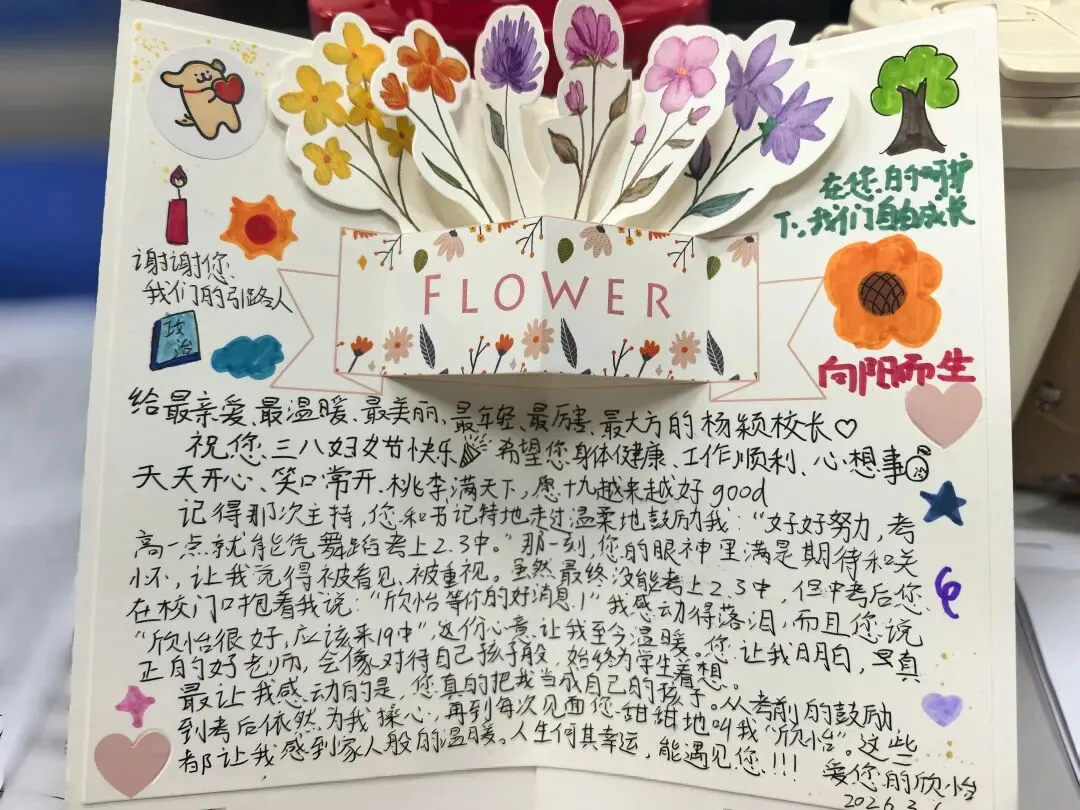 在您的呵护
下,我们自由成长
FLOWER
谢谢您
我们的引路人
政治
向阳而生
给最亲爱、最温暖、最美丽、最年轻、最厉害、最大方的杨颖校长♡
祝您三八妇女节快乐 希望您身体健康、工作顺利、心想事
天天开心、笑口常开、桃李满天下,愿十九越来越好good
记得那次主持,您和书记特地走过温柔地鼓励我:“好好努力,考
高一点就能凭舞蹈考上2.3中。”那一刻,您的眼神里满是期待和关
怀,让我觉得被看见、被重视。虽然最终没能考上2.3中,但中考后您
在校门口抱着我说:“欣怡等你的好消息!”我感动得落泪,而且您说
“欣怡很好,应该来19中”,这份心意让我至今温暖。您让我明白,真
正的好老师,会像对待自己孩子般,始终为学生着想。
最让我感动的是,您真的把我当成自己的孩子。从考前的鼓励
到考后依然为我操心,再到每次见面您甜甜地叫我“欣怡”。这些
都让我感到家人般的温暖。人生何其幸运,能遇见您!!!
爱您的欣怡
2026.3